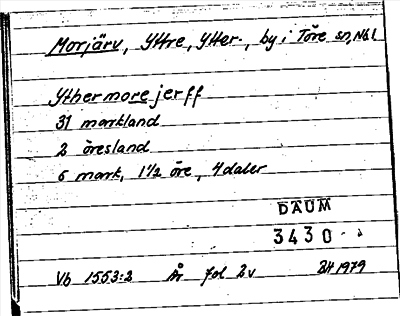 Morjärv, Yttre, Ytter-, by i Töre sn, Nbl
Ythermorejerff
31 markland
2 öresland
6 mark, 1 1/2 öre, 4 daler
DAUM
3430
Vb 1553:2 År fol 2v BH 1979